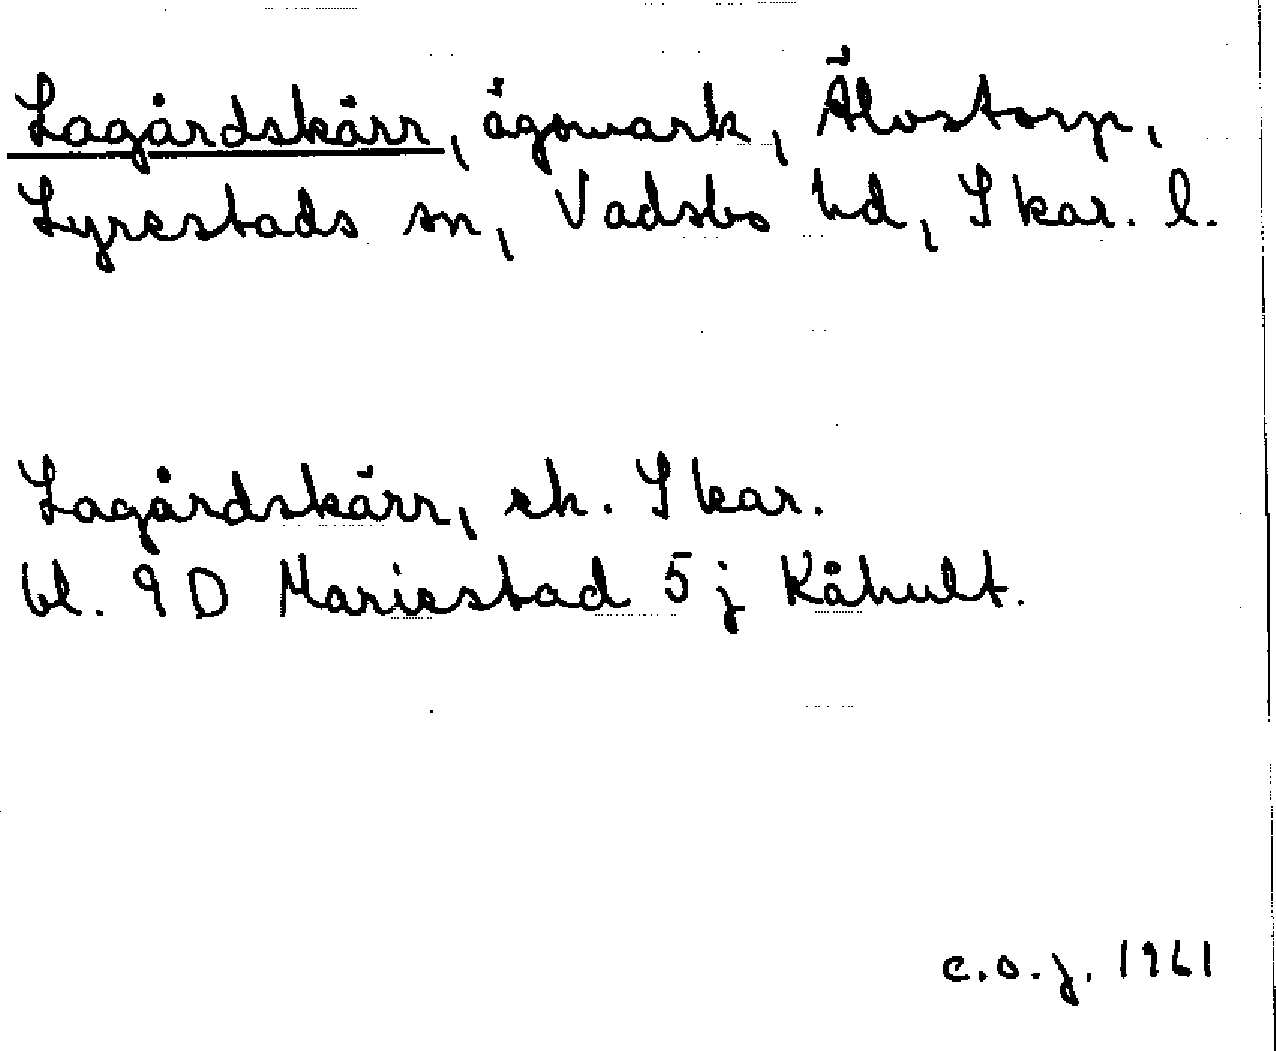 Lagårdskärr, ägomark, Älvstorp,
Lyrestads sn, Vadsbo hd, Skar. l.
Lagårdskärr, ek. Skar.
bl. 9D Mariestad 5j Kåhult.
c.o.j. 1961